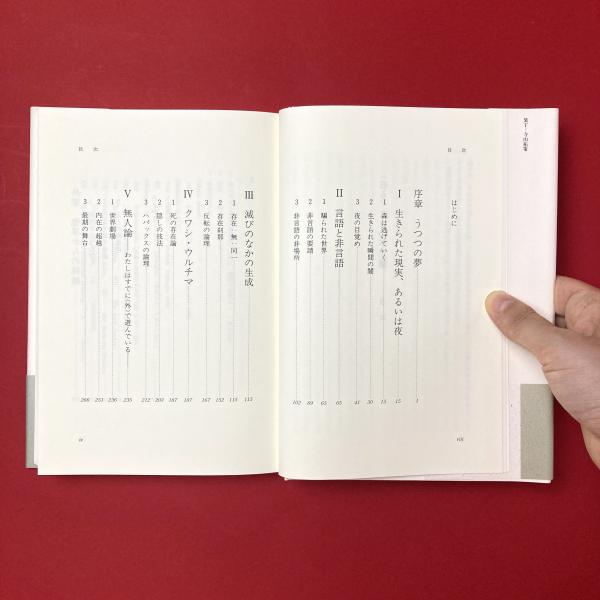 目次
はじめに
序章 うつつの夢 1
I 生きられた現実、あるいは夜 15
1 森は逃げていく 15
2 生きられた瞬間の闇 30
3 夜の目覚め 41
II 言語と非言語 65
1 騙られた世界 65
2 非言語の要請 89
3 非言語の非場所 102
viii
目次
III 滅びのなかの生成 115
1 存在::無::同一 115
2 存在刹那 152
3 反転の論理 167
IV クワシ・ウルチマ 187
1 死の存在論 187
2 隠しの技法 203
3 ハパックスの論理 212
V 無人論 わたしはすでに〈外〉で遊んでいる 235
1 世界劇場 236
2 内在の超越 251
3 最期の舞台 266
ix